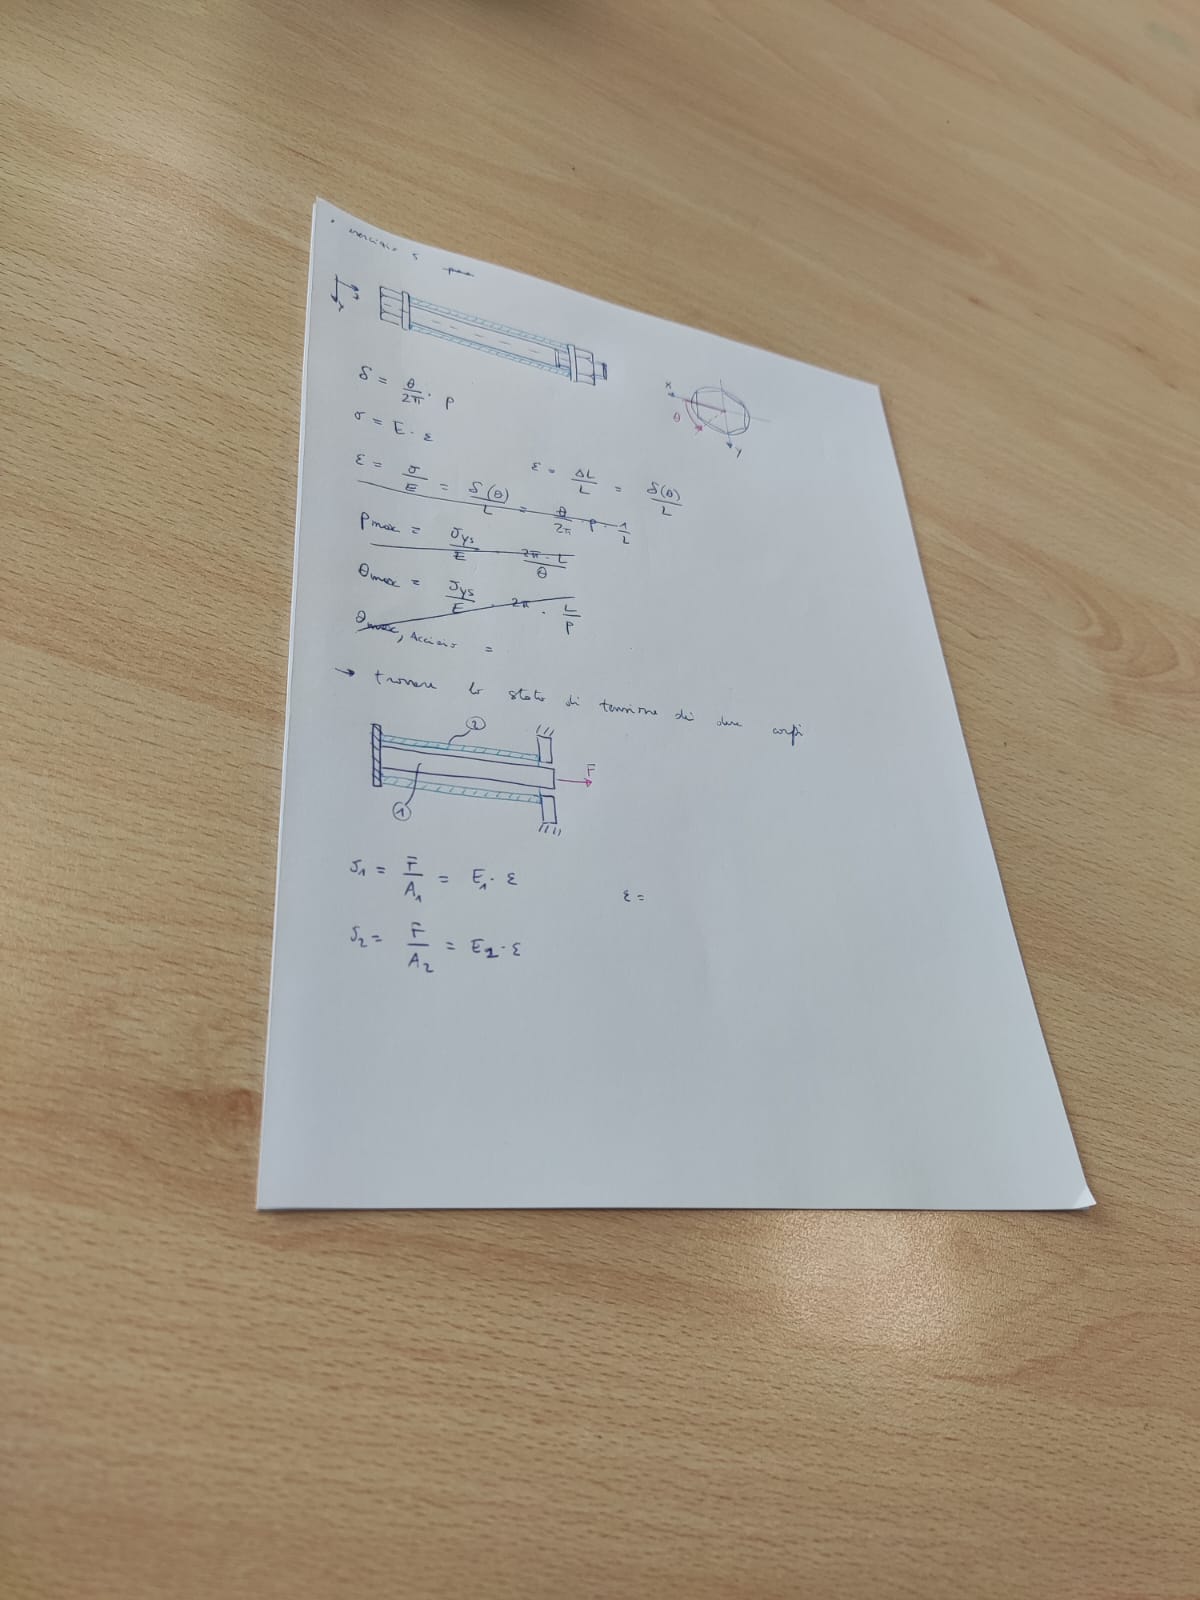 • esercizio 5
δ = θ/2π · p
x
θ
y
σ = E · ε
ε = σ/E = δ(θ)/L = θ/2π · p · 1/L
ε = ΔL/L = δ(θ)/L
Pmax = σys/E · 2π · L/θ
θmax = σys/E · 2π · L/p
θmax, Acciaio =
→ trovare lo stato di tensione di due corpi
2
F
1
σ1 = F/A1 = E1 · ε
ε =
σ2 = F/A2 = E2 · ε